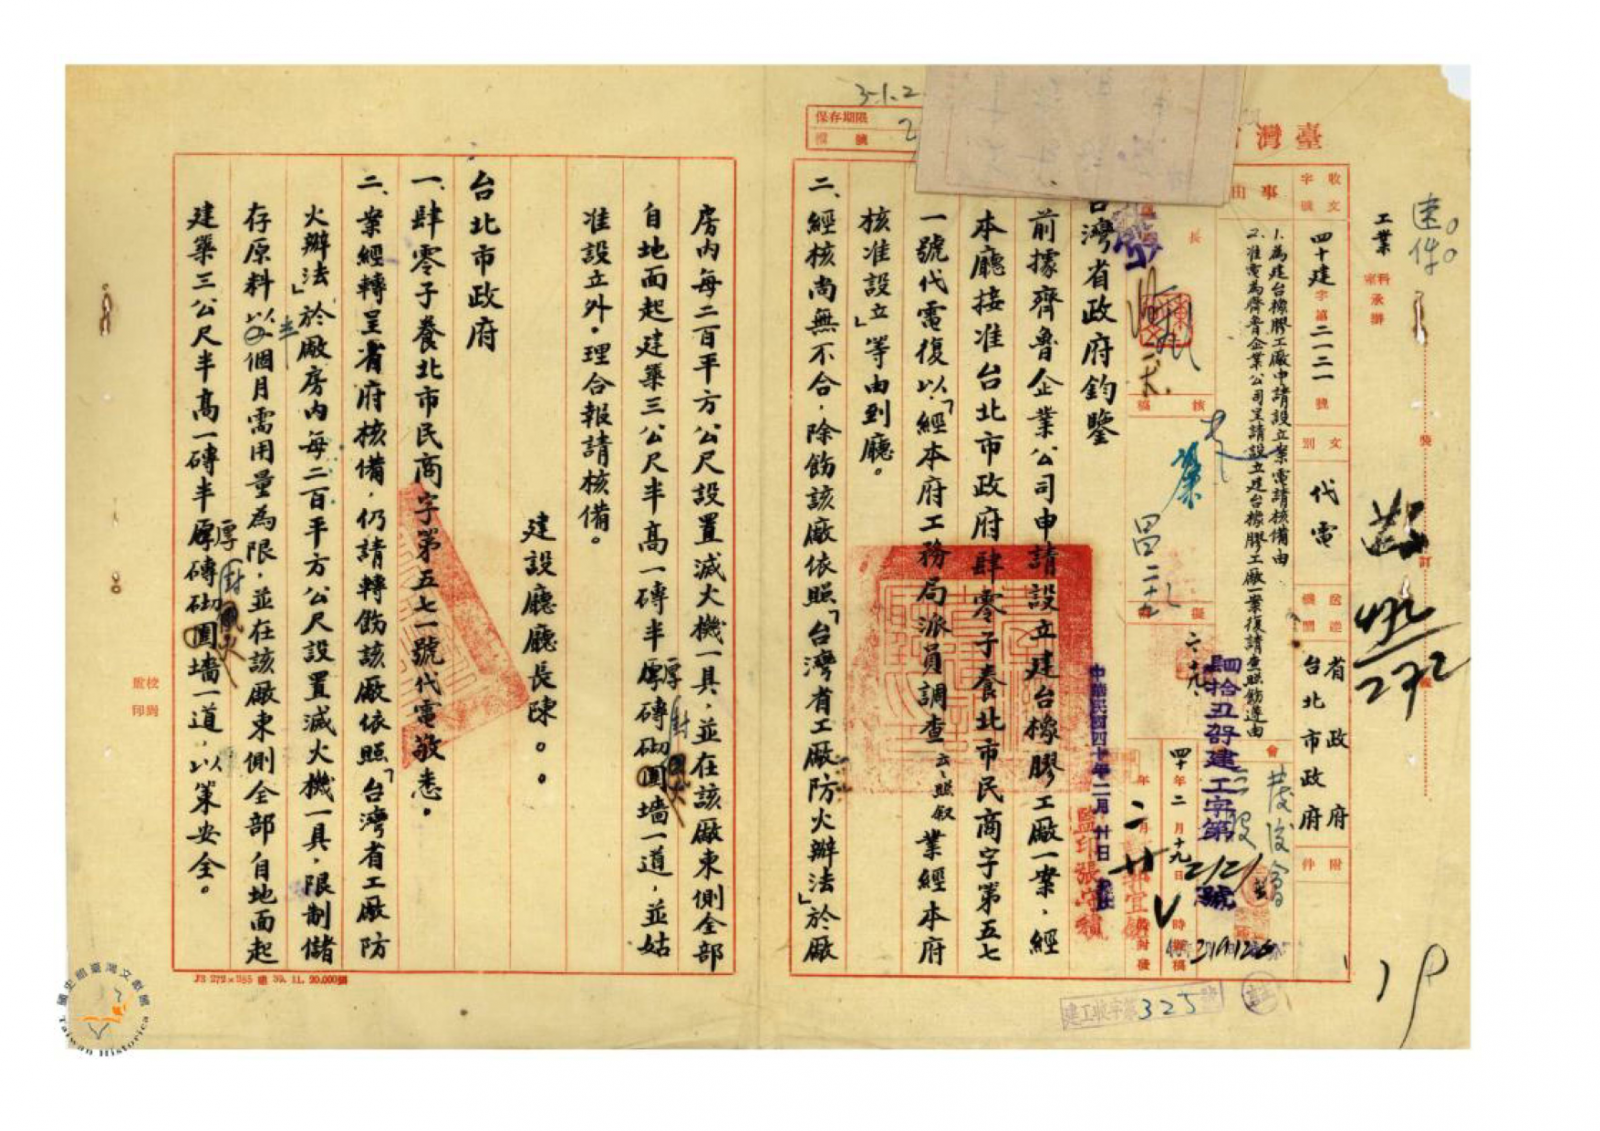 速件
工業
科室承辦
臺灣
收文字號
四十建字第二一二一號
文別
代電
送達機關
省政府
台北市政府
附件
事由
1.為建台橡膠工廠申請設立案電請核備由
2.准電為齊魯企業公司呈請設立建台橡膠工廠一案復請查照飭遵由
保存期限
檔號
3-1.2
廳長
核稿
擬稿
會
四十年二月十九日
肆拾丑哿建工字第2121號
中華民國四十年二月廿日
監印張守績
台灣省政府鈞鑒
前據齊魯企業公司申請設立建台橡膠工廠一案,經
本廳接准台北市政府肆零子養北市民商字第五七
一號代電復以「經本府工務局派員調查云云照敘業經本府
核准設立」等由到廳。
二、經核尚無不合,除飭該廠依照「台灣省工廠防火辦法」於廠
房內每二百平方公尺設置滅火機一具,並在該廠東側全部
自地面起建築三公尺半高一磚半厚磚砌防火墻一道,並姑
准設立外,理合報請核備。
建設廳廳長陳。。
台北市政府
一、肆零子養北市民商字第五七一號代電敬悉。
二、案經轉呈省府核備,仍請轉飭該廠依照「台灣省工廠防
火辦法」於廠房內每二百平方公尺設置滅火機一具,限制儲
存原料以半個月需用量為限,並在該廠東側全部自地面起
建築三公尺半高一磚半厚磚砌防火墻一道,以策安全。
校對
監印
建工收字第325號
國史館臺灣文獻館
Taiwan Historica